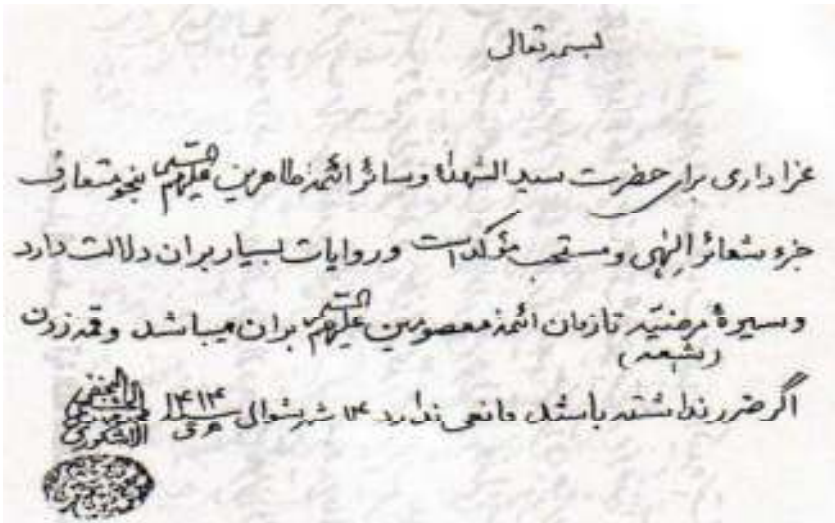 بسمه تعالی
عزاداری برای حضرت سید الشهداء و سائر ائمه طاهرین علیهم السلام بنحو متعارف
جزء شعائر الهی و مستحب مؤکد است و روایات بسیار بران دلالت دارد
و سیرهٔ مرضیّه تا زمان ائمه معصومین علیهم السلام بران میباشد و قمه زدن
(شیعه)
اگر ضرر نداشته باشد مانعی ندارد ۱۴ شهر شوال ۱۴۱۴